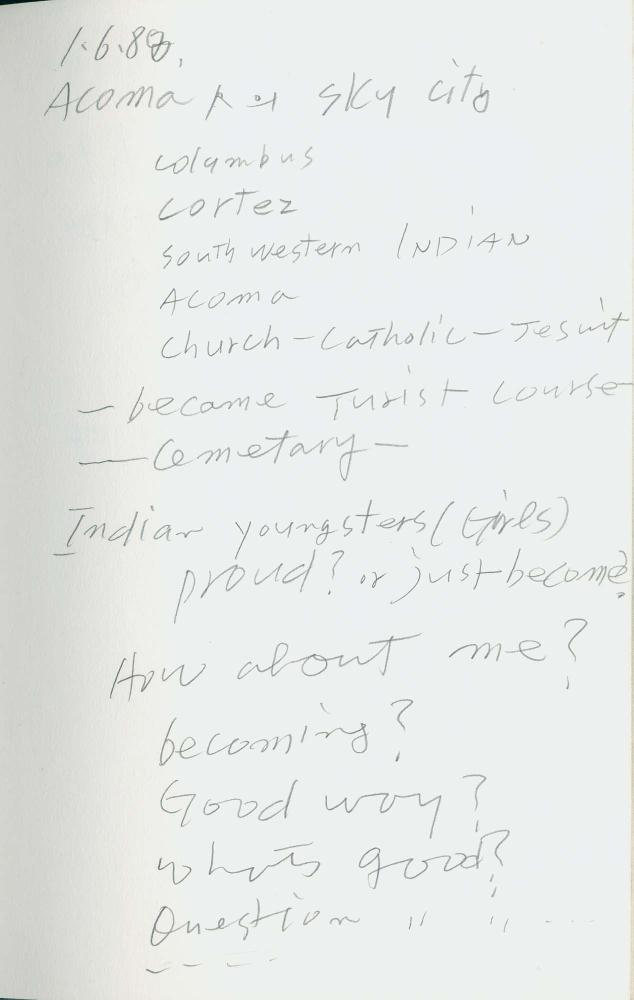 1.6.88,
Acoma 人의 sky city
columbus
cortez
south western INDIAN
Acoma
church - catholic - Jesuit
- became Turist course
- Cemetary -
Indian youngsters (Girls)
proud? or just become?
How about me?
becoming?
Good way?
whats good?
Question " " ....
- - - -